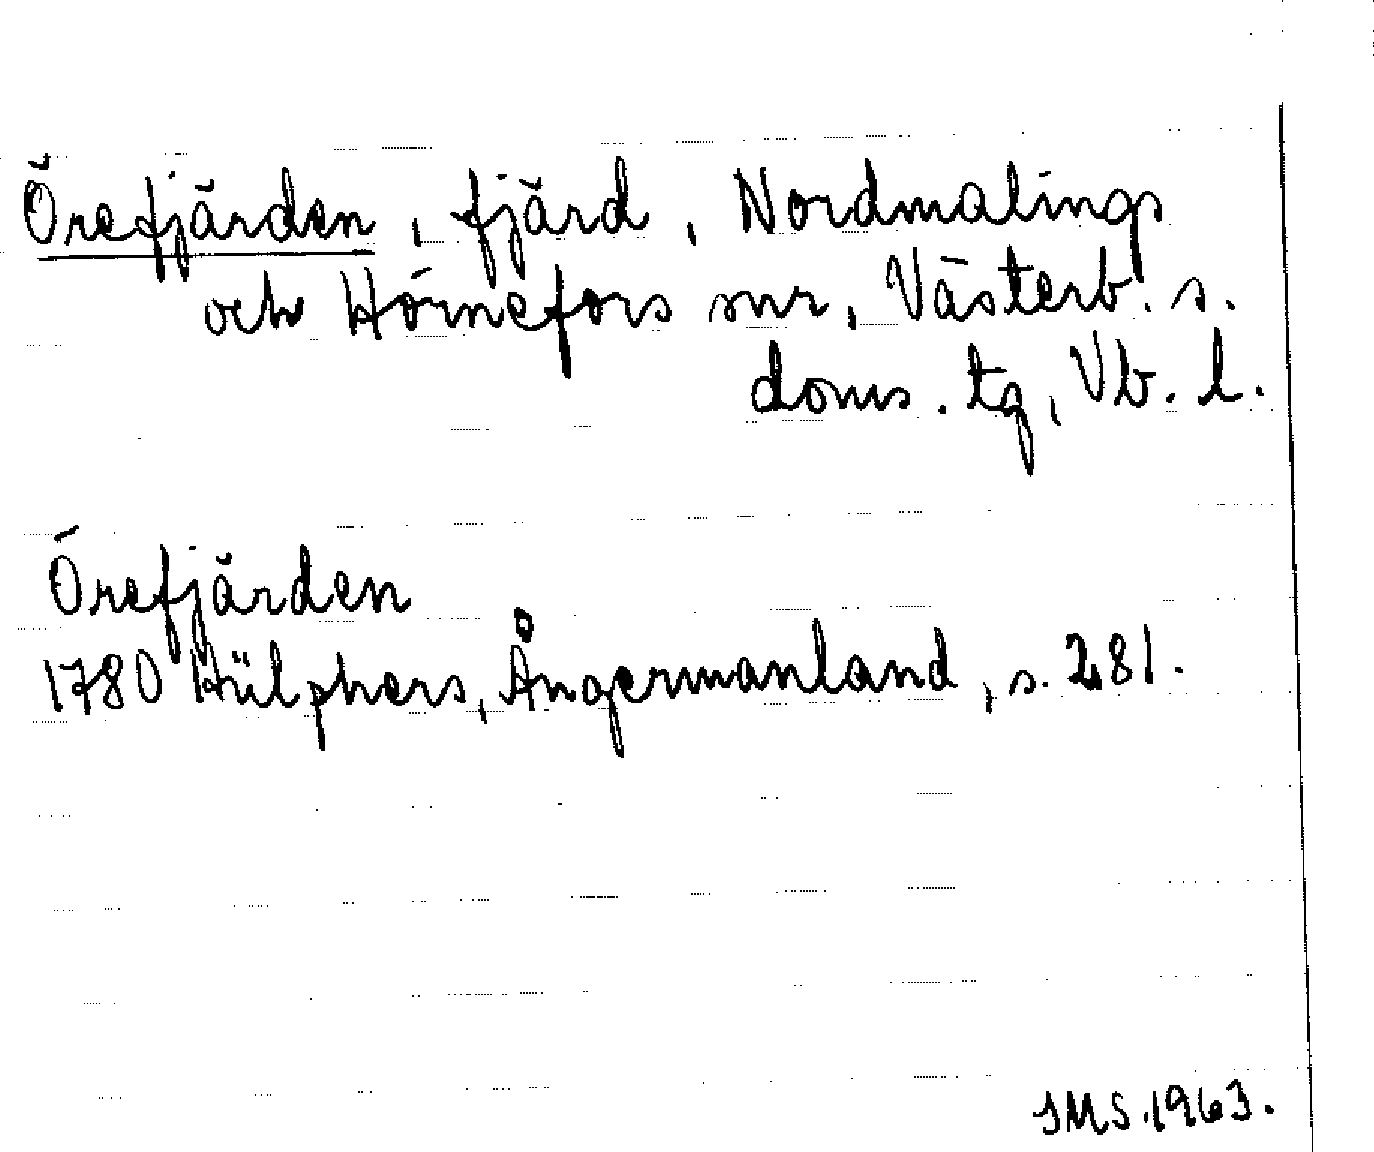 Örefjärden, fjärd, Nordmalings
och Hörnefors snr, Västerb. s.
doms. tg, Vb. l.
Örefjärden
1780 Hülphers, Ångermanland, s. 281.
IMS.1963.